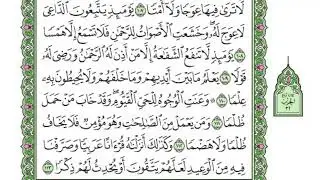 لَّا تَرَىٰ فِيهَا عِوَجًا وَلَا أَمْتًا ۝ يَوْمَئِذٍ يَتَّبِعُونَ الدَّاعِيَ
لَا عِوَجَ لَهُ وَخَشَعَتِ الْأَصْوَاتُ لِلرَّحْمَٰنِ فَلَا تَسْمَعُ إِلَّا هَمْسًا
۝ يَوْمَئِذٍ لَّا تَنفَعُ الشَّفَاعَةُ إِلَّا مَنْ أَذِنَ لَهُ الرَّحْمَٰنُ وَرَضِيَ لَهُ
قَوْلًا ۝ يَعْلَمُ مَا بَيْنَ أَيْدِيهِمْ وَمَا خَلْفَهُمْ وَلَا يُحِيطُونَ بِهِ
عِلْمًا ۝ وَعَنَتِ الْوُجُوهُ لِلْحَيِّ الْقَيُّومِ وَقَدْ خَابَ مَنْ حَمَلَ
ظُلْمًا ۝ وَمَن يَعْمَلْ مِنَ الصَّالِحَاتِ وَهُوَ مُؤْمِنٌ فَلَا يَخَافُ
ظُلْمًا وَلَا هَضْمًا ۝ وَكَذَٰلِكَ أَنزَلْنَاهُ قُرْآنًا عَرَبِيًّا وَصَرَّفْنَا
فِيهِ مِنَ الْوَعِيدِ لَعَلَّهُمْ يَتَّقُونَ أَوْ يُحْدِثُ لَهُمْ ذِكْرًا ۝